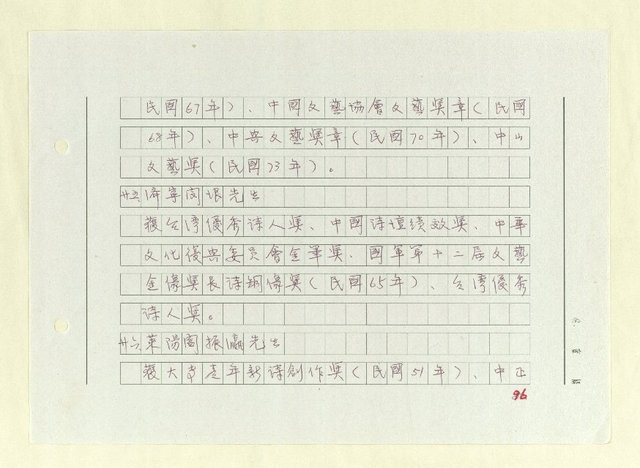 民國67年）、中國文藝協會文藝獎章（民國
68年）、中興文藝獎章（民國70年）、中山
文藝獎（民國73年）。
廿五濟寧閻垠先生
獲台灣優秀詩人獎、中國詩壇績效獎、中華
文化復興委員會金筆獎、國軍第十二屆文藝
金像獎長詩銅像獎（民國65年）、台灣優秀
詩人獎。
廿六萊陽閻振瀛先生
獲大專青年新詩創作獎（民國51年）、中正
96